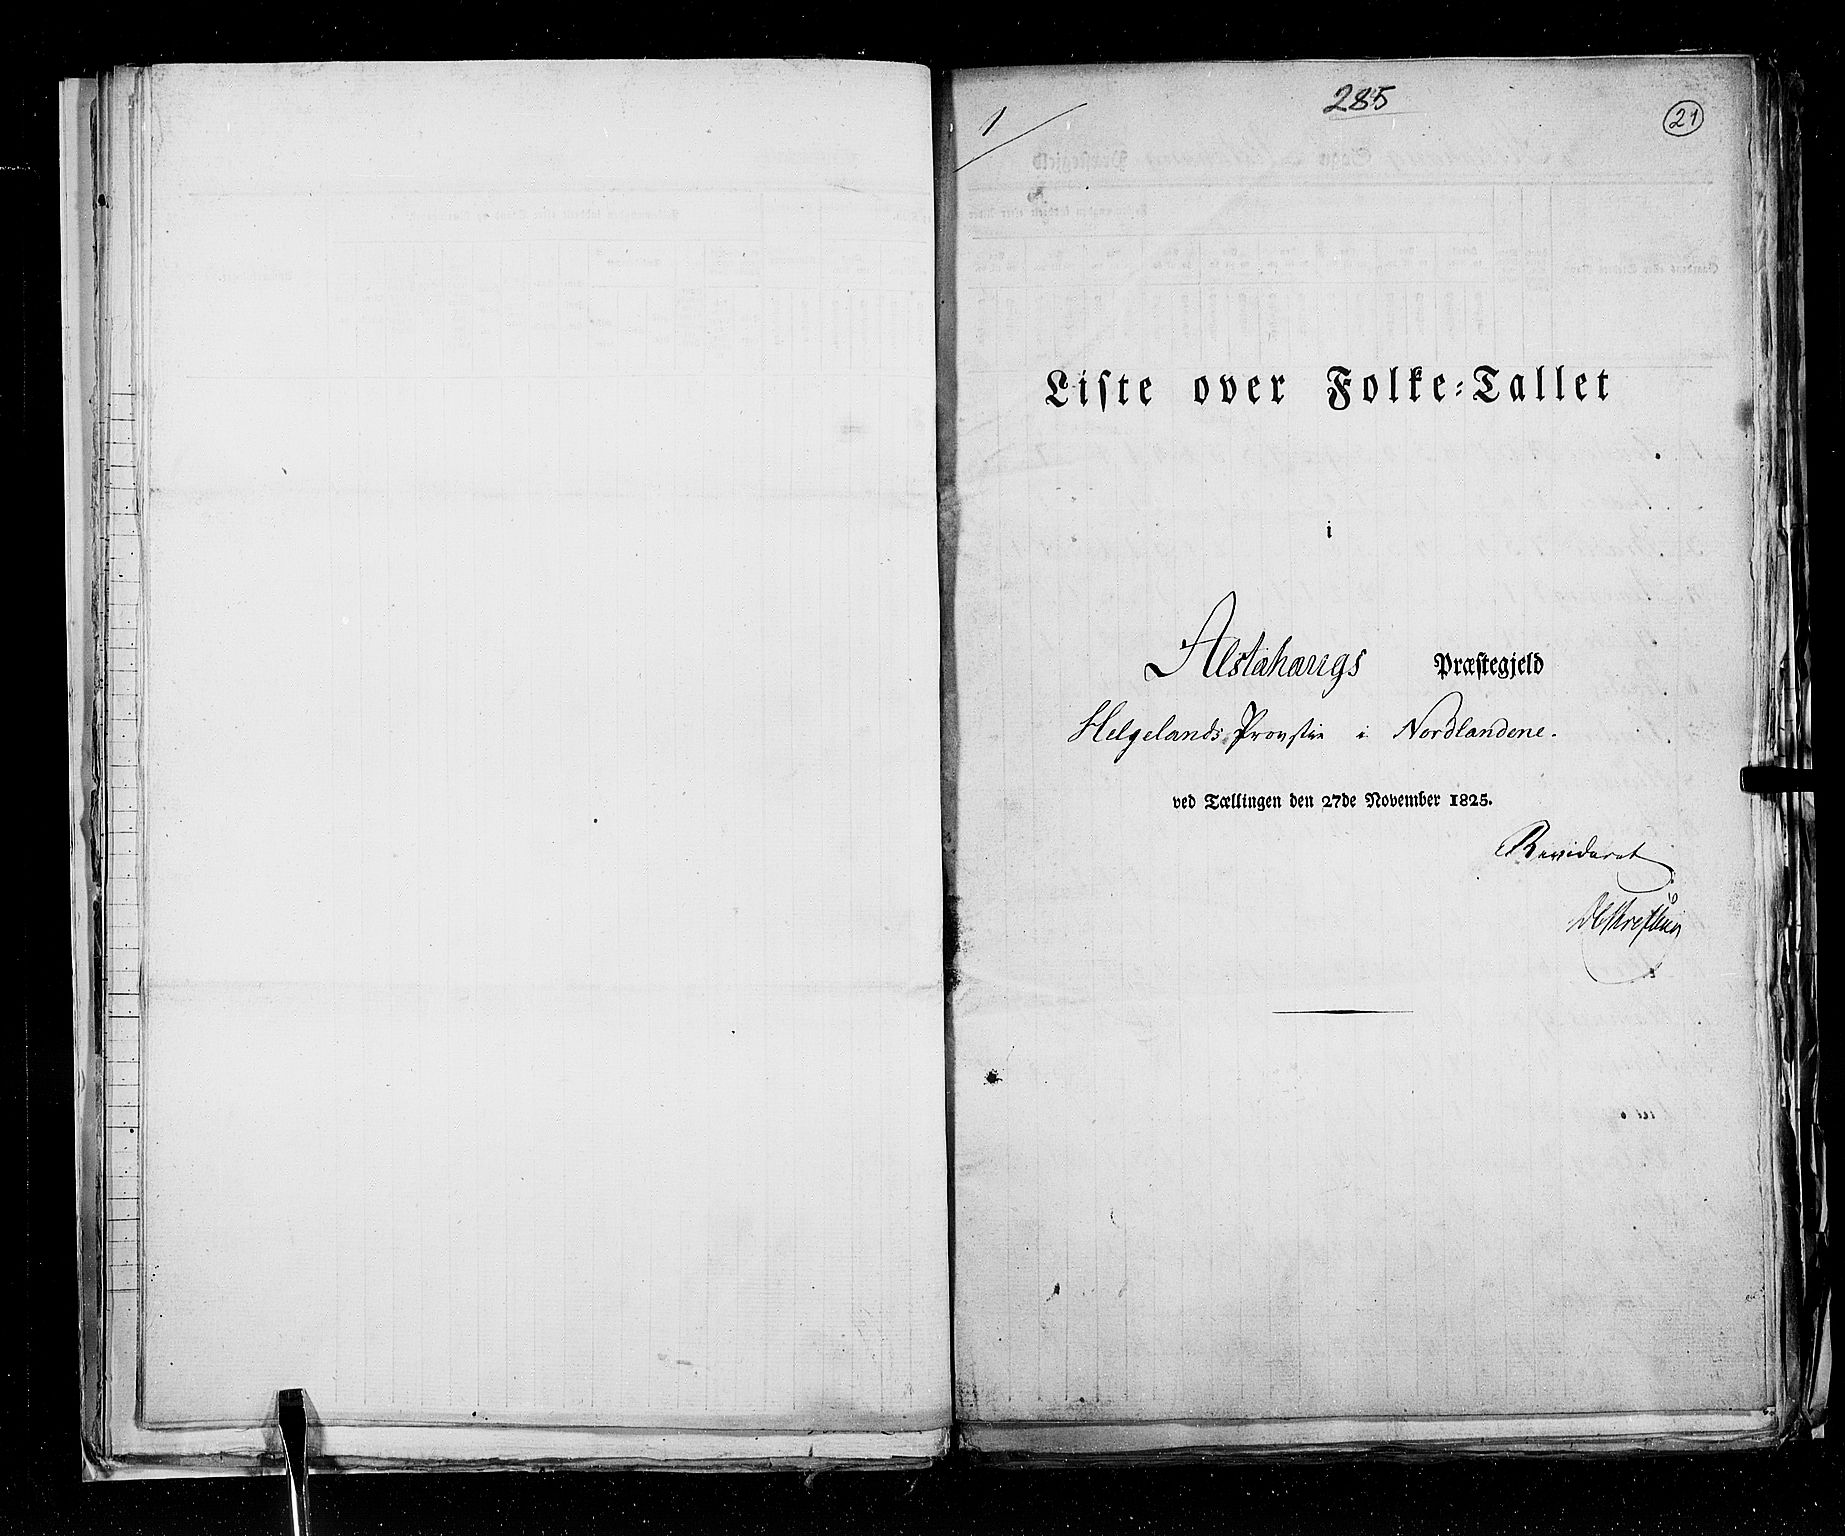 1
285
21
Liste over Folke-Tallet
i
Alstahaugs Præstegjeld
Helgelands Provstie i Nordlandene.
ved Tællingen den 27de November 1825.
Revideret